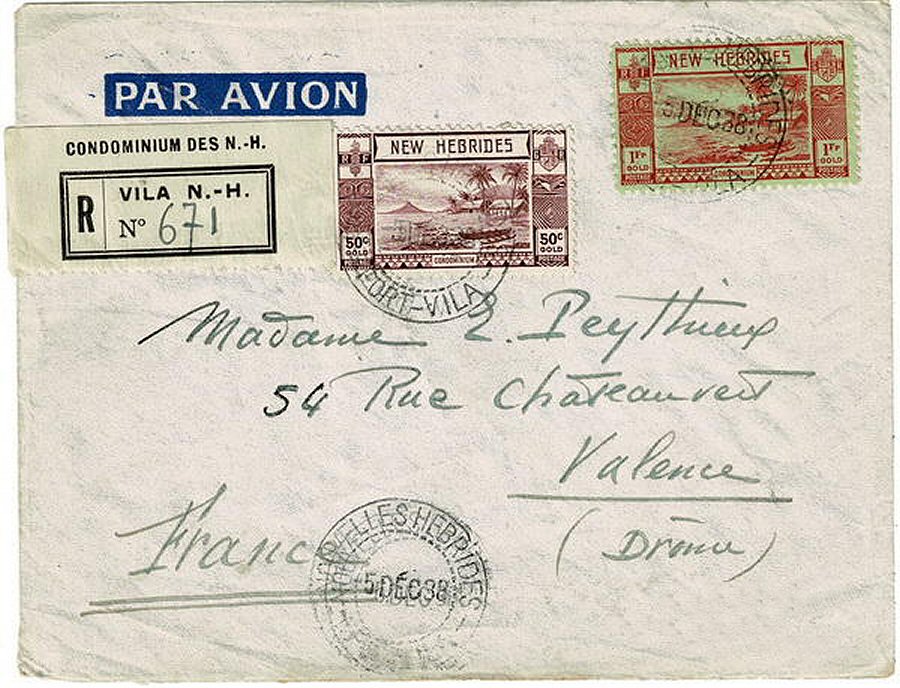 PAR AVION
CONDOMINIUM DES N.-H.
R
VILA N.-H.
Nº 671
NEW HEBRIDES
RF
50c GOLD
50c GOLD
POSTAGE
CONDOMINIUM
PORT-VILA
NEW HEBRIDES
RF
5 DEC 38
1Fr GOLD
1Fr GOLD
VILA
Madame E. Peythieux
54 Rue Châteauvert
Valence
(Drôme)
France
NOUVELLES HEBRIDES
5 DEC 38